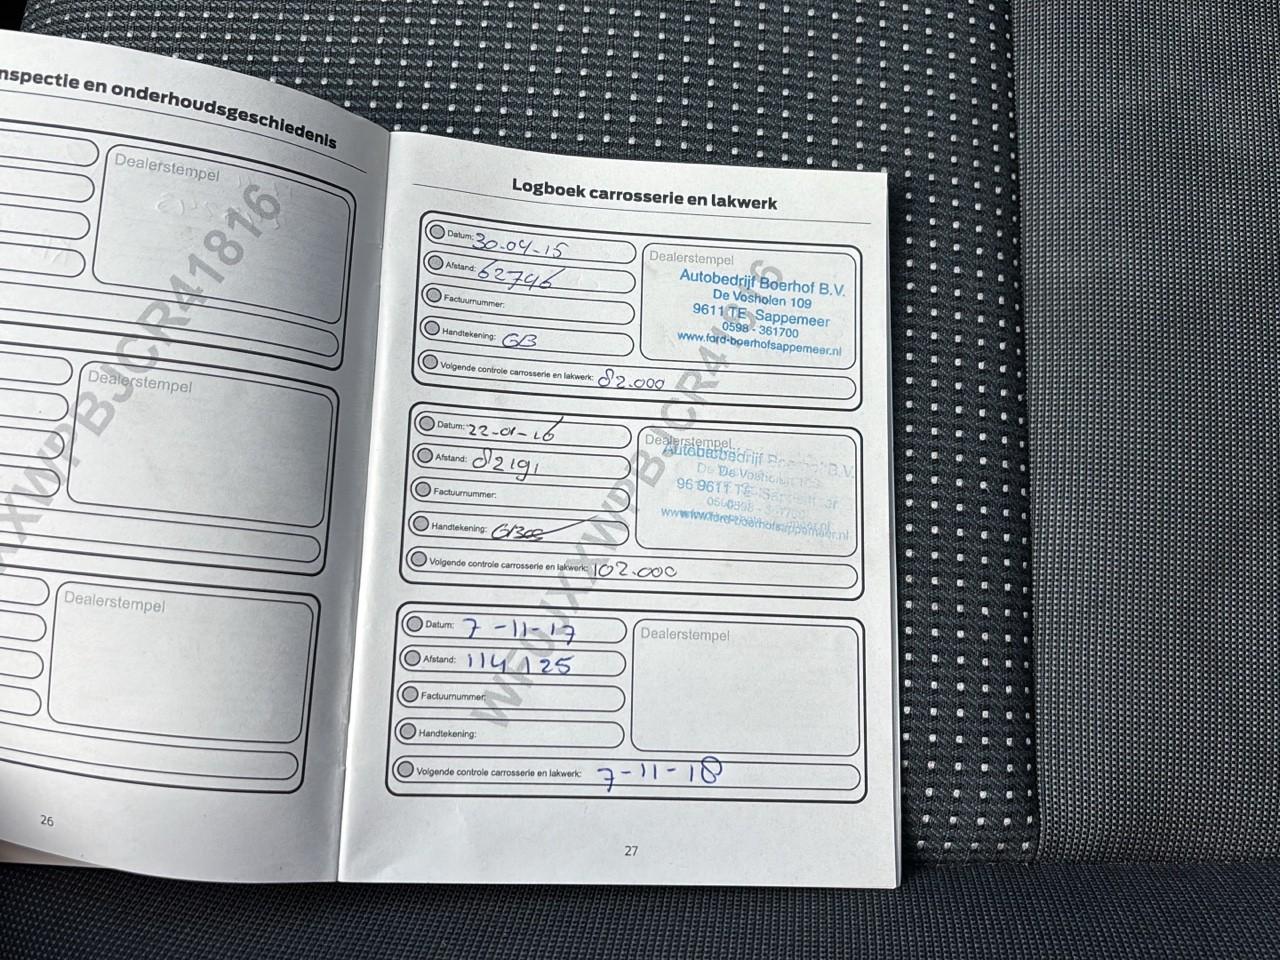 nspectie en onderhoudsgeschiedenis
Dealerstempel
Dealerstempel
Dealerstempel
26
Logboek carrosserie en lakwerk
Datum: 30-04-15
Afstand: 62746
Factuurnummer:
Handtekening: GB
Volgende controle carrosserie en lakwerk: 82.000
Dealerstempel
Autobedrijf Boerhof B.V.
De Vosholen 109
9611 TE Sappemeer
0598 - 361700
www.ford-boerhofsappemeer.nl
Datum: 22-01-16
Afstand: 82191
Factuurnummer:
Handtekening:
Volgende controle carrosserie en lakwerk: 102.000
Dealerstempel
Autobedrijf Boerhof B.V.
De Vosholen 109
9611 TE Sappemeer
www.ford-boerhofsappemeer.nl
Datum: 7-11-17
Afstand: 114125
Factuurnummer:
Handtekening:
Volgende controle carrosserie en lakwerk: 7-11-18
Dealerstempel
27
WF0JXXWPBJCR41816
XXWPBJCR41816